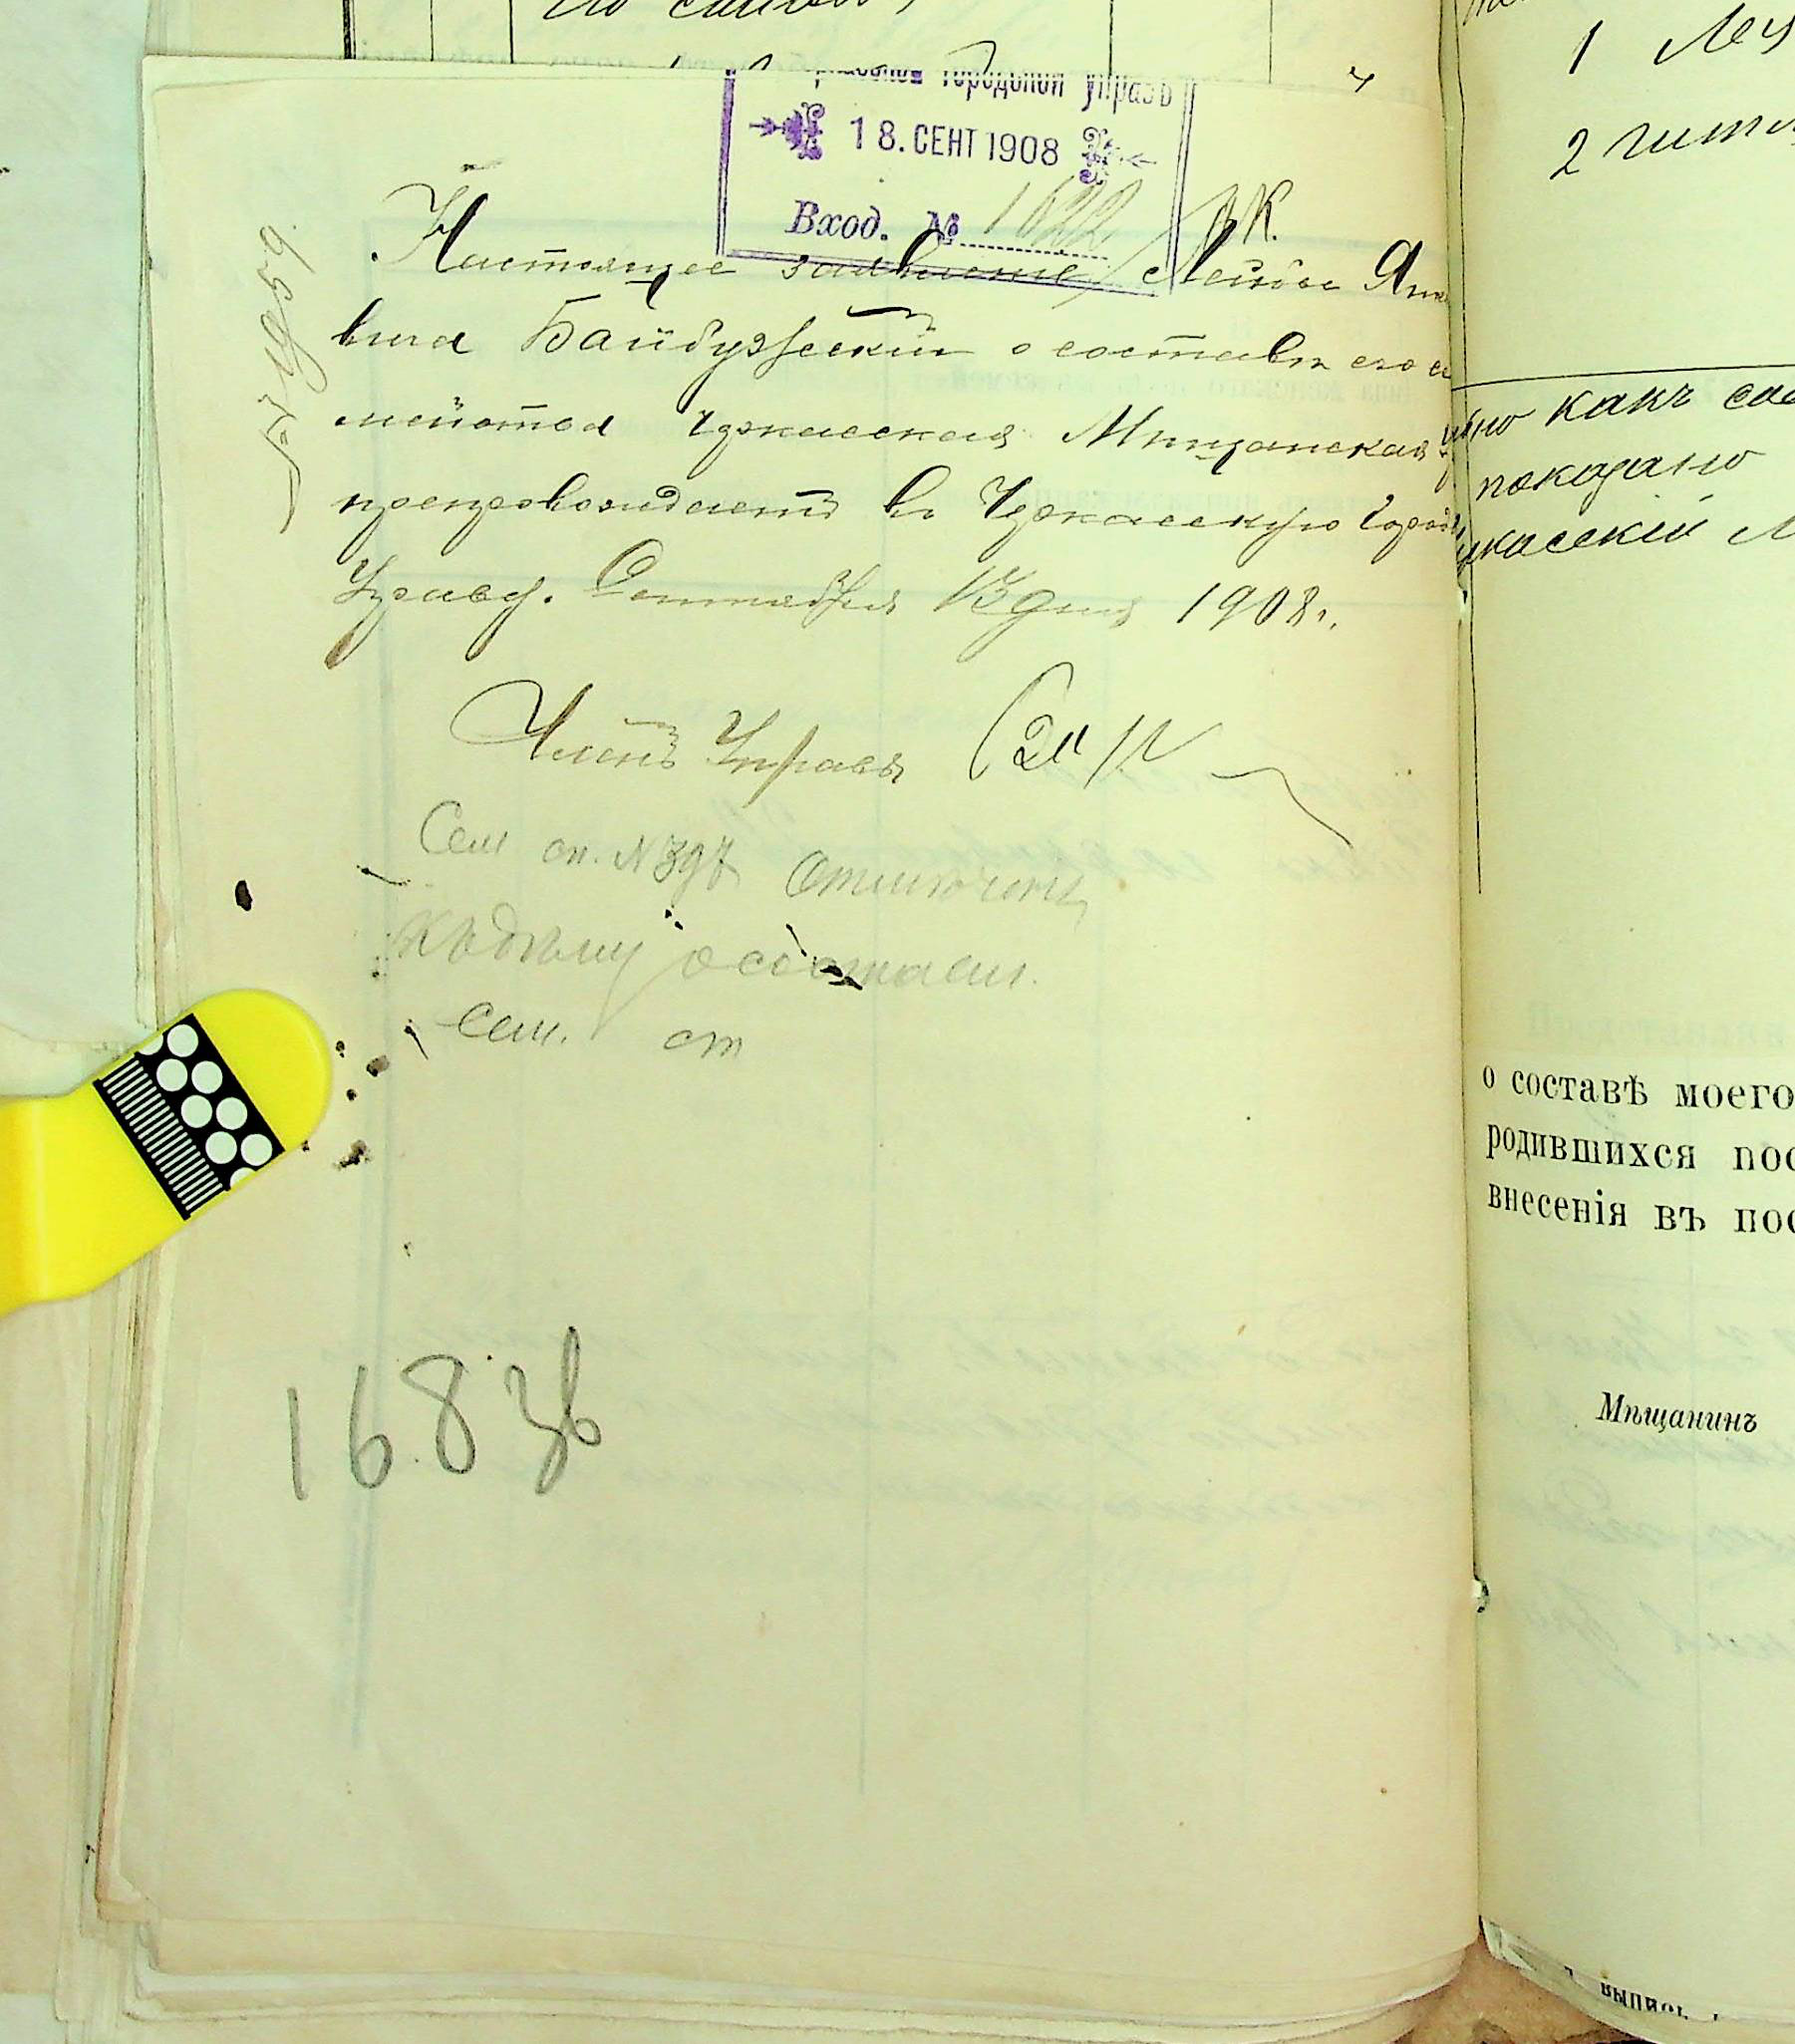 городской управѣ
18. СЕНТ 1908
Вход. № 1622
В К.
№ 959.
Настоящее заявленіе Лейбы Янк
вича Байбузскій о составѣ его се
мейства Черкасская Мѣщанская У
препровождаетъ въ Черкасскую Город
Управу. Сентября 13 дня 1908 г.
Членъ Управы
Сем сп. № 397
Къ дѣлу о состав
сем.
168 зв
1
2
но какъ
показано
ркасскій М
о составѣ моего
родившихся пос
внесенія въ пос
Мѣщанинъ
выпись